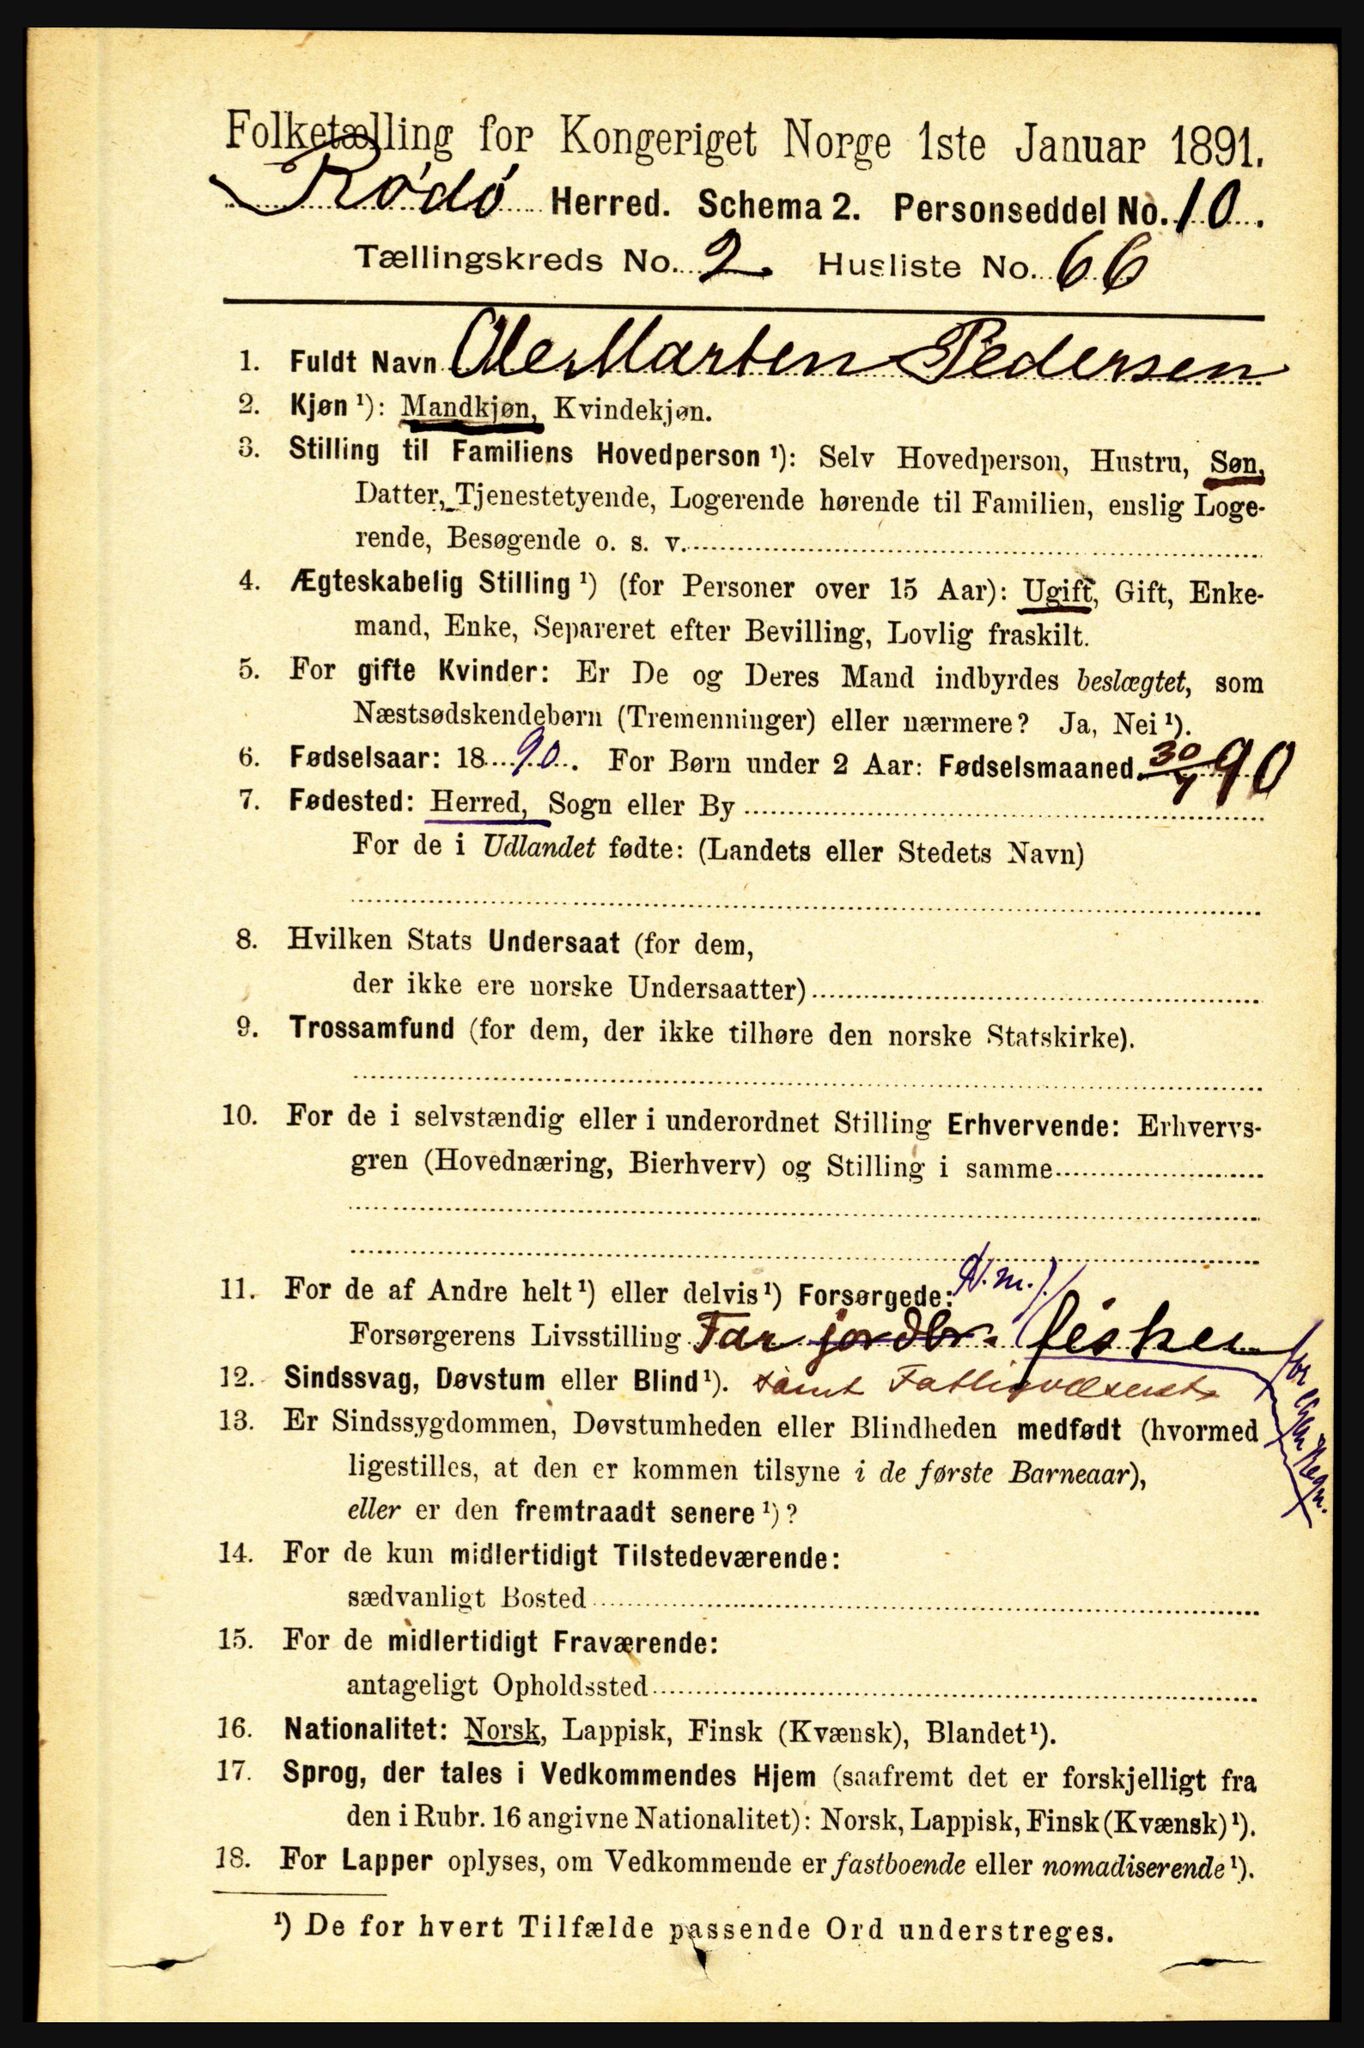 Folketælling for Kongeriget Norge 1ste Januar 1891.
Rødø Herred. Schema 2. Personseddel No. 10.
Tællingskreds No. 2. Husliste No. 66
1. Fuldt Navn Ole Marten Pedersen
2. Kjøn ¹): Mandkjøn, Kvindekjøn.
3. Stilling til Familiens Hovedperson ¹): Selv Hovedperson, Hustru, Søn,
Datter, Tjenestetyende, Logerende hørende til Familien, enslig Loge-
rende, Besøgende o. s. v.
4. Ægteskabelig Stilling ¹) (for Personer over 15 Aar): Ugift, Gift, Enke-
mand, Enke, Separeret efter Bevilling, Lovlig fraskilt.
5. For gifte Kvinder: Er De og Deres Mand indbyrdes beslægtet, som
Næstsødskendebørn (Tremenninger) eller nærmere? Ja, Nei ¹).
6. Fødselsaar: 1890. For Børn under 2 Aar: Fødselsmaaned. 30/7 90
7. Fødested: Herred, Sogn eller By
For de i Udlandet fødte: (Landets eller Stedets Navn)
8. Hvilken Stats Undersaat (for dem,
der ikke ere norske Undersaatter)
9. Trossamfund (for dem, der ikke tilhøre den norske Statskirke).
10. For de i selvstændig eller i underordnet Stilling Erhvervende: Erhvervs-
gren (Hovednæring, Bierhverv) og Stilling i samme
N. m.).
11. For de af Andre helt ¹) eller delvis ¹) Forsørgede:
Forsørgerens Livsstilling Far jordbr. fisker
for egen Regn.
12. Sindssvag, Døvstum eller Blind ¹). samt Fattigvæsenet
13. Er Sindssygdommen, Døvstumheden eller Blindheden medfødt (hvormed
ligestilles, at den er kommen tilsyne i de første Barneaar),
eller er den fremtraadt senere ¹)?
14. For de kun midlertidigt Tilstedeværende:
sædvanligt Bosted
15. For de midlertidigt Fraværende:
antageligt Opholdssted
16. Nationalitet: Norsk, Lappisk, Finsk (Kvænsk), Blandet ¹).
17. Sprog, der tales i Vedkommendes Hjem (saafremt det er forskjelligt fra
den i Rubr. 16 angivne Nationalitet): Norsk, Lappisk, Finsk (Kvænsk) ¹).
18. For Lapper oplyses, om Vedkommende er fastboende eller nomadiserende ¹).
¹) De for hvert Tilfælde passende Ord understreges.